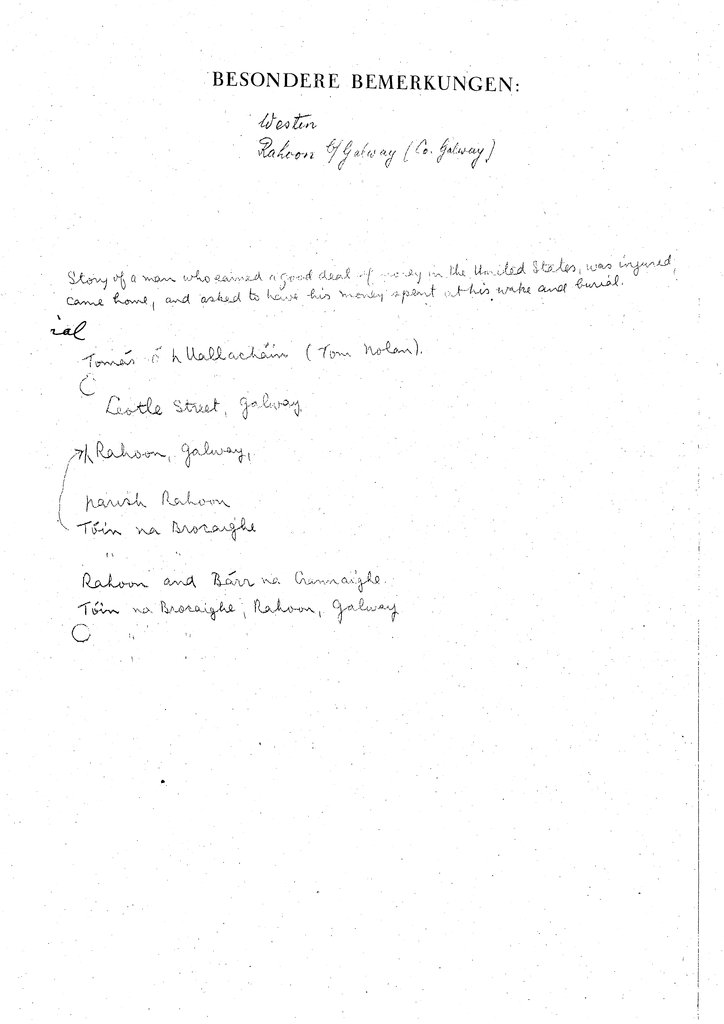 BESONDERE BEMERKUNGEN:
Westen
Rahoon b/Galway (Co. Galway)
Story of a man who earned a good deal of money in the United States, was injured,
came home, and asked to have his money spent at his wake and burial.
ial
Tomás Ó hUallacháin (Tom Nolan).
Galway
Rahoon, Galway,
parish Rahoon
Tóin na Brocaighe
" "
Rahoon and Bárr na
Tóin na Brocaighe, Rahoon, Galway
" "